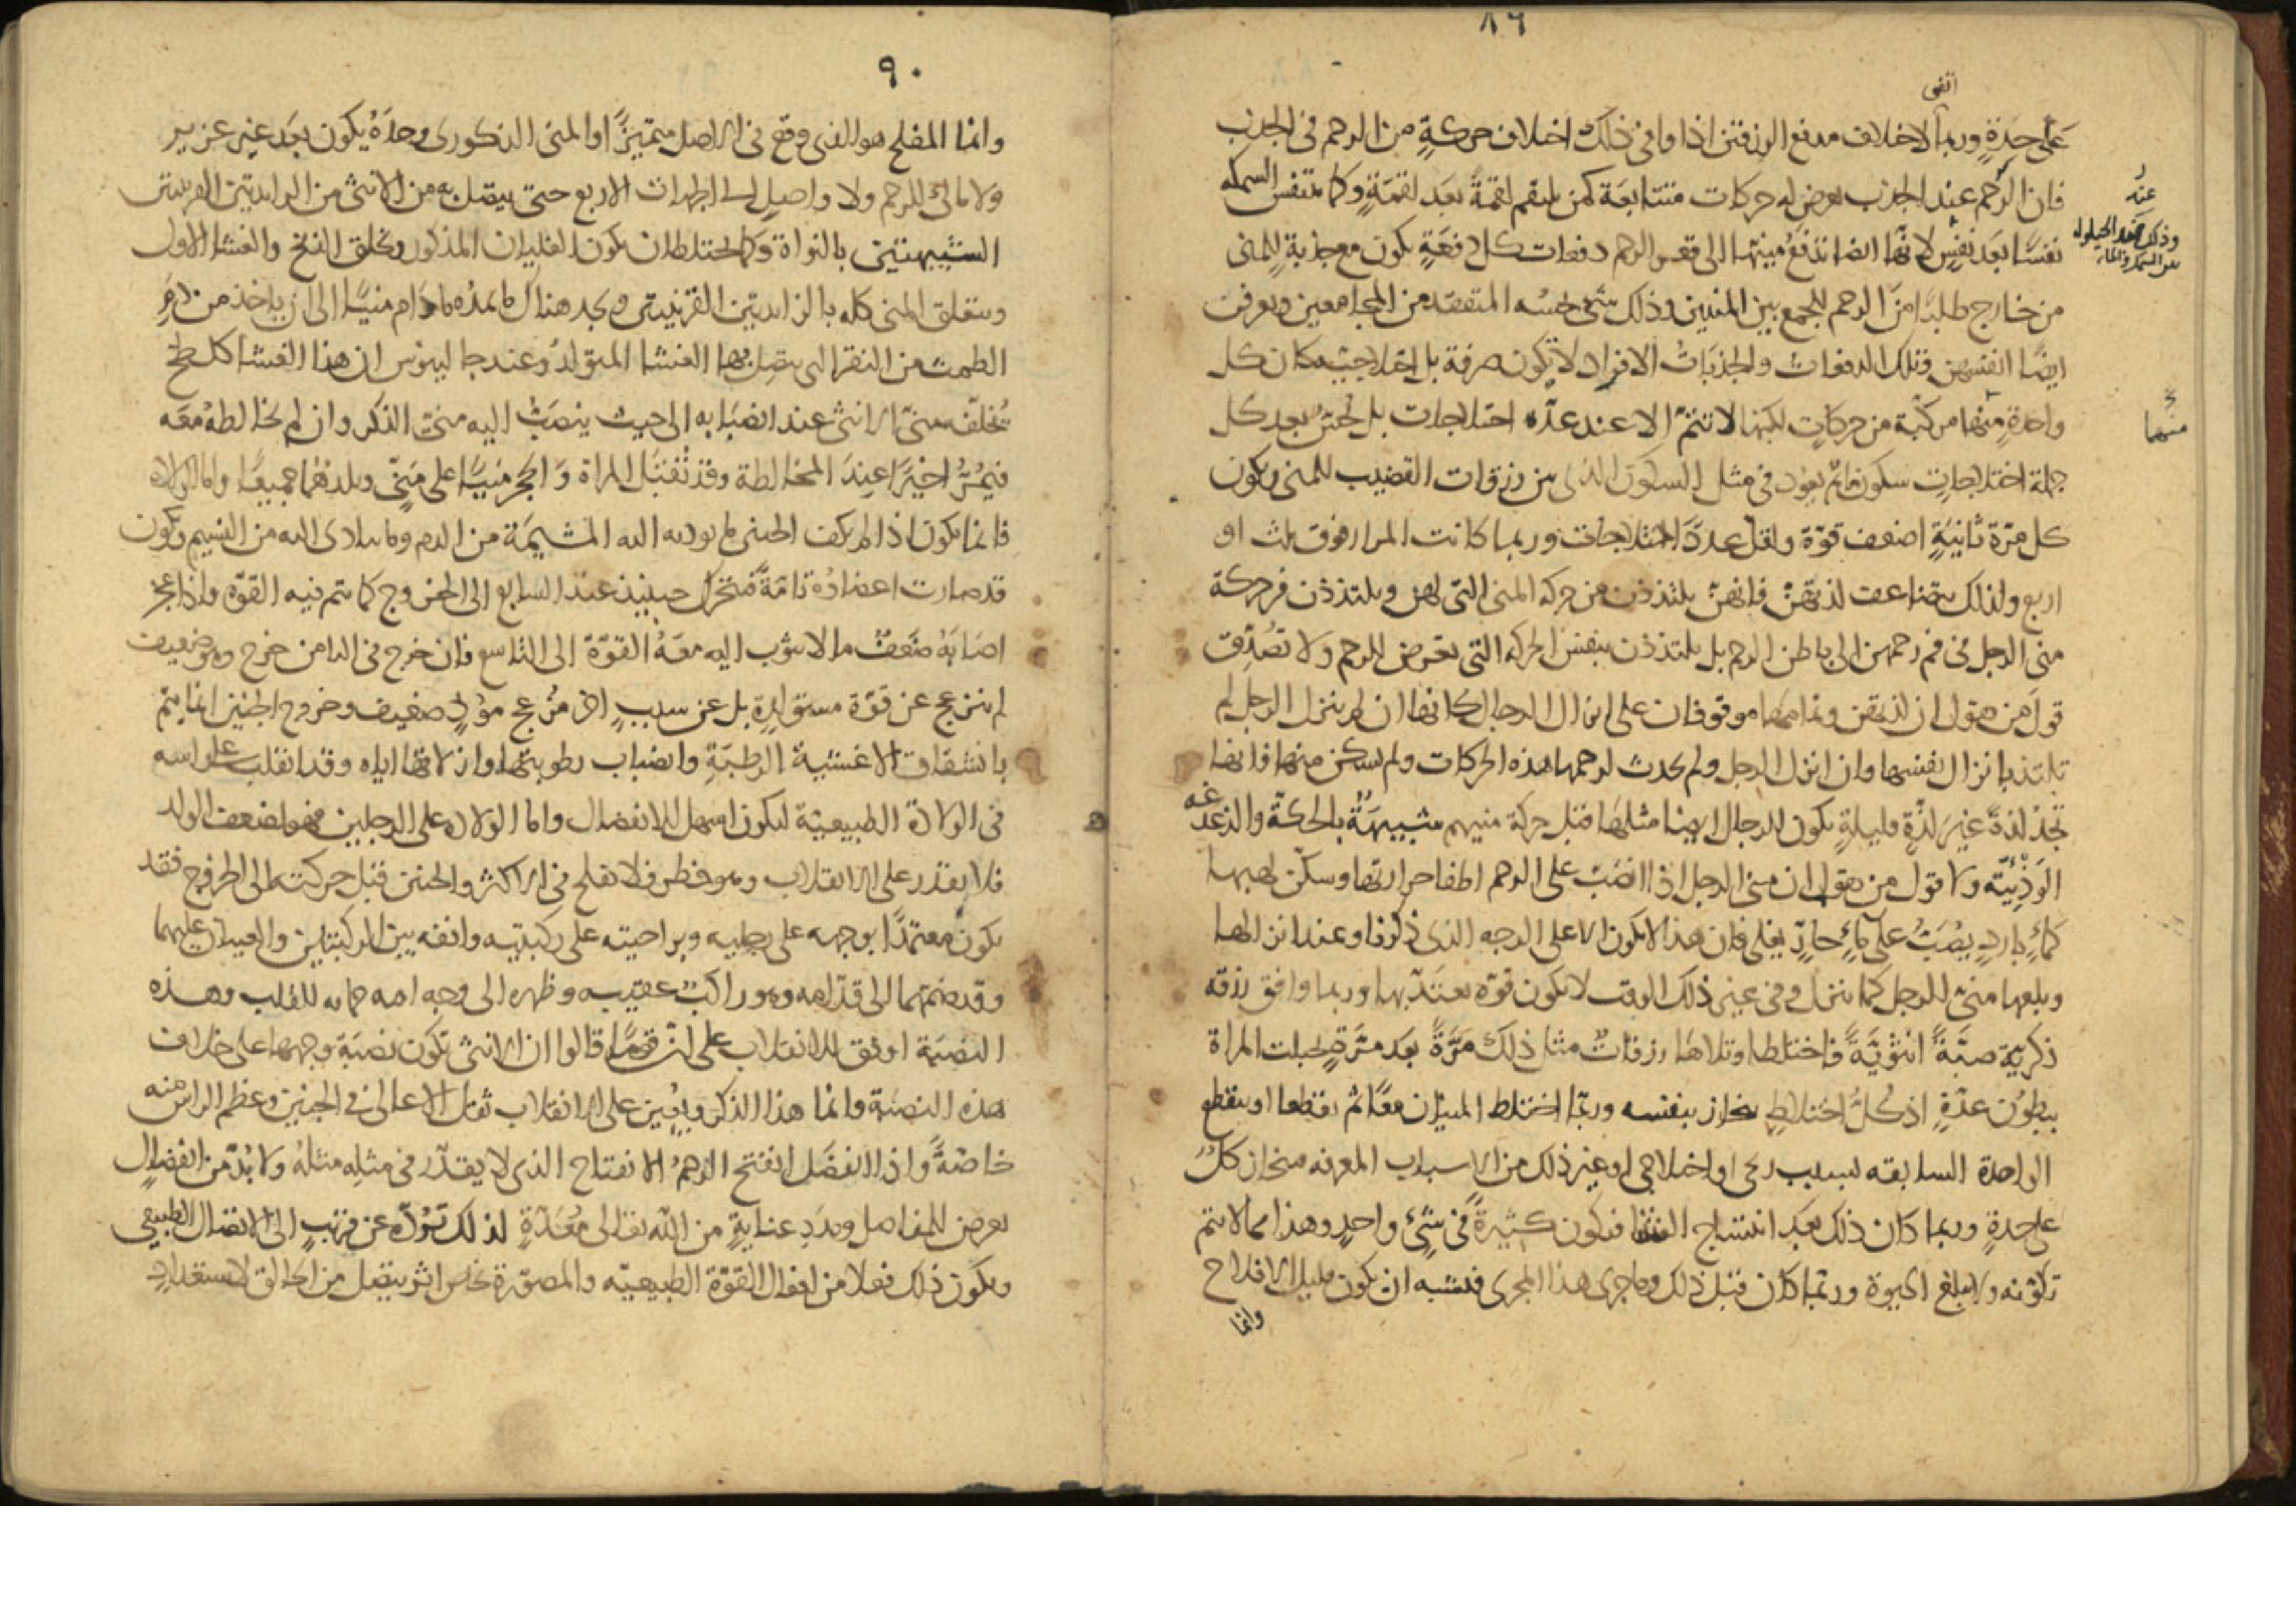 ٨٩
اتفق
على حدةٍ وربما لاختلاف مدفع الزرقتين اذا وافى ذلك اختلاف حركةٍ من الرحم فى الجذب
فان الرحم عند الجذب يعرض له حركات متتابعة كمن يلتقم لقمةً بعد لقمةٍ وكما تتنفس السمكه
نفسًا بعد نفسٍ لانها ايضا تدفع منيها الى قعر الرحم دفعات كل دفعةٍ يكون مع جذبةٍ للمنى
عند
وذلك عند الحيلولة
بين السمك والماء
من خارج طلبًا من الرحم للجمع بين المنيين وذلك شئ يحسه المتفقد من المجامعين ويعرفن
ايضًا انفسهن وتلك الدفعات والجذبات الافراد لا تكون صرفة بل اختلاجيّه كان كل
واحدةٍ منها مركبة من حركاتٍ لكنها لا تتمّ الا عند عدّة اختلاجات بل يحسّ بعد كل
منهما
جملة اختلاجاتٍ سكون ما ثم يعود فى مثل السكون الذى بين زرقات القضيب للمنى ويكون
كل مرّة ثانيةٍ اضعف قوّة واقل عددَ اختلاجات وربما كانت المرار فوق ثلث او
اربع ولذلك يتضاعف لذتهنّ فانهنّ يلتذذن من حركه المنى التى لهن ويلتذذن من حركة
منى الرجل فى فم رحمهن الى باطن الرحم بل يلتذذن بنفس الحركه التى تعرض للرحم ولا تصدّق
قول من يقول ان لذتهن وتمامها موقوفان على انزال الرجال كانها ان لم ينزل الرجل لم
تلتذ بانزال نفسها وان انزل الرجل ولم يحدث لرحمها هذه الحركات ولم يسكن منها فانها
تجد لذةً غير لذّةٍ قليلةٍ يكون للرجال ايضا مثلها قبل حركة منيهم شبيهةٌ بالحكّة والدغدغه
الوذييّة ولا قول من يقول ان منى الرجل اذا انصبّ على الرحم اطفا حرارتها وسكّن لهيبها
كماءٍ باردٍ يصبّ على ماءٍ حارٍّ يغلى فان هذا لا يكون الا على الوجه الذى ذكرنا وعند انزالها
وبلعها منىّ الرجل كما ينزل وفى غير ذلك الوقت لا يكون قوّه يعتدّ بها وربما وافق زرقه
ذكريّة صبّةً انثويّةً فاختلطا وتلاها زرقاتٌ مثل ذلك مرّةً بعد مرّةٍ لحبلت المراة
ببطونٍ عدّةٍ اذ كلّ اختلاطٍ ينحاز بنفسه وربّما اختلط المنيان معًا ثم تقطعا او ينقطع
الواحدة السابقه لسبب ريحى او اختلاجى او غير ذلك من الاسباب المعرفه فينحاز كلّ
على حدةٍ وربما كان ذلك بعد انتساج الغشا فيكون كثيرةً فى شئٍ واحدٍ وهذا مما لا يتم
تكوّنه ولا يبلغ الحيوة وربّما كان قبل ذلك وما جرى هذا المجرى فيشبه ان يكون قليل الافلاح
وانما
٩٠
وانما المفلح هو الذى وقع فى الاصل متميّزًا او المنى الذكورى وحدَهُ يكون بعد غير عزير
ولا مالئ للرحم ولا واصلٍ الى الجهات الاربع حتى يتصل به من الانثى من الزايدتين القرنيتين
الشبيهتين بالنواة وكما يختلطان يكون الغليان المذكور ويخلق النفخ والغشا الاول
ويتعلق المنى كله بالزايدتين القرنيتين ويجد هناك ما يمدّه ما دام منيّا الى ان ياخذ من دم
الطمث من النقر التى يتصل بها الغشا المتولد وعند جالينوس ان هذا الغشا كلطخ
يخلّفه منىّ الانثى عند انصبابه الى حيث ينصب اليه منىّ الذكر وان لم يخالطهُ معه
فيمرّ اخيرًا عند المخالطة وقد تقبل المراة والحجر منيّا على منىّ ويلدهما جميعًا واما الولاد
فانما يكون اذا لم يكف الجنين ما يوديه اليه المشيمة من الدم وما يتادى اليه من النسيم ويكون
قد صارت اعضاؤه تامّةً فيتحرك حينئذ عند السابع الى الخروج كما يتم فيه القوّة واذا عجز
اصابهُ ضعفٌ ما لا يثوب اليه معهُ القوّة الى التاسع فان خرج فى الثامن خرج وهو ضعيف
لم ينزعج عن قوّة مستولدةٍ بل عن سببٍ اخر مزعج مؤذٍ ضعيف وخروج الجنين انما يتم
بانشقاق الاغشية الرطبةِ وانصباب رطوبتها وازلاقها اياه وقد انقلب على راسه
فى الولادة الطبيعيّة ليكون اسهل للانفصال واما الولاد على الرجلين فهو لضعف الولد
فلا يقدر على الانقلاب وهو خطر فلا يفلح فى الاكثر والجنين قبل حركته الى الخروج فقد
يكون معتمدًا بوجهه على رجليه وبراحيته على ركبتيه وانفه بين الركبتين والعينان عليهما
وقد ضمّهما الى قدّامه وهو راكب عقبيه وظهره الى وجه امه حمايه للقلب وهذه
النصبة اوفق للانقلاب على انّ قومًا قالوا ان الانثى تكون نصبة وجهها على خلاف
هذه النصبة وانما هذا الذكر ويعين على الانقلاب ثقل الاعالى فى الجنين وعظم الراس منه
خاصّةً واذا انفصل انفتح الرحمُ الانفتاح الذى لا يقدّر فى مثله مثلهُ ولا بدّ من انفصالٍ
يعرض للمفاصل ومددِ عنايةٍ من الله تعالى مُعدّةٍ لذلك تردّه عن قريبٍ الى الاتصال الطبيعى
ويكون ذلك فعلا من افعال القوّة الطبيعيّه والمصوّرة بخاصّ اثر يتصل من الخالق لاستعدادٍ